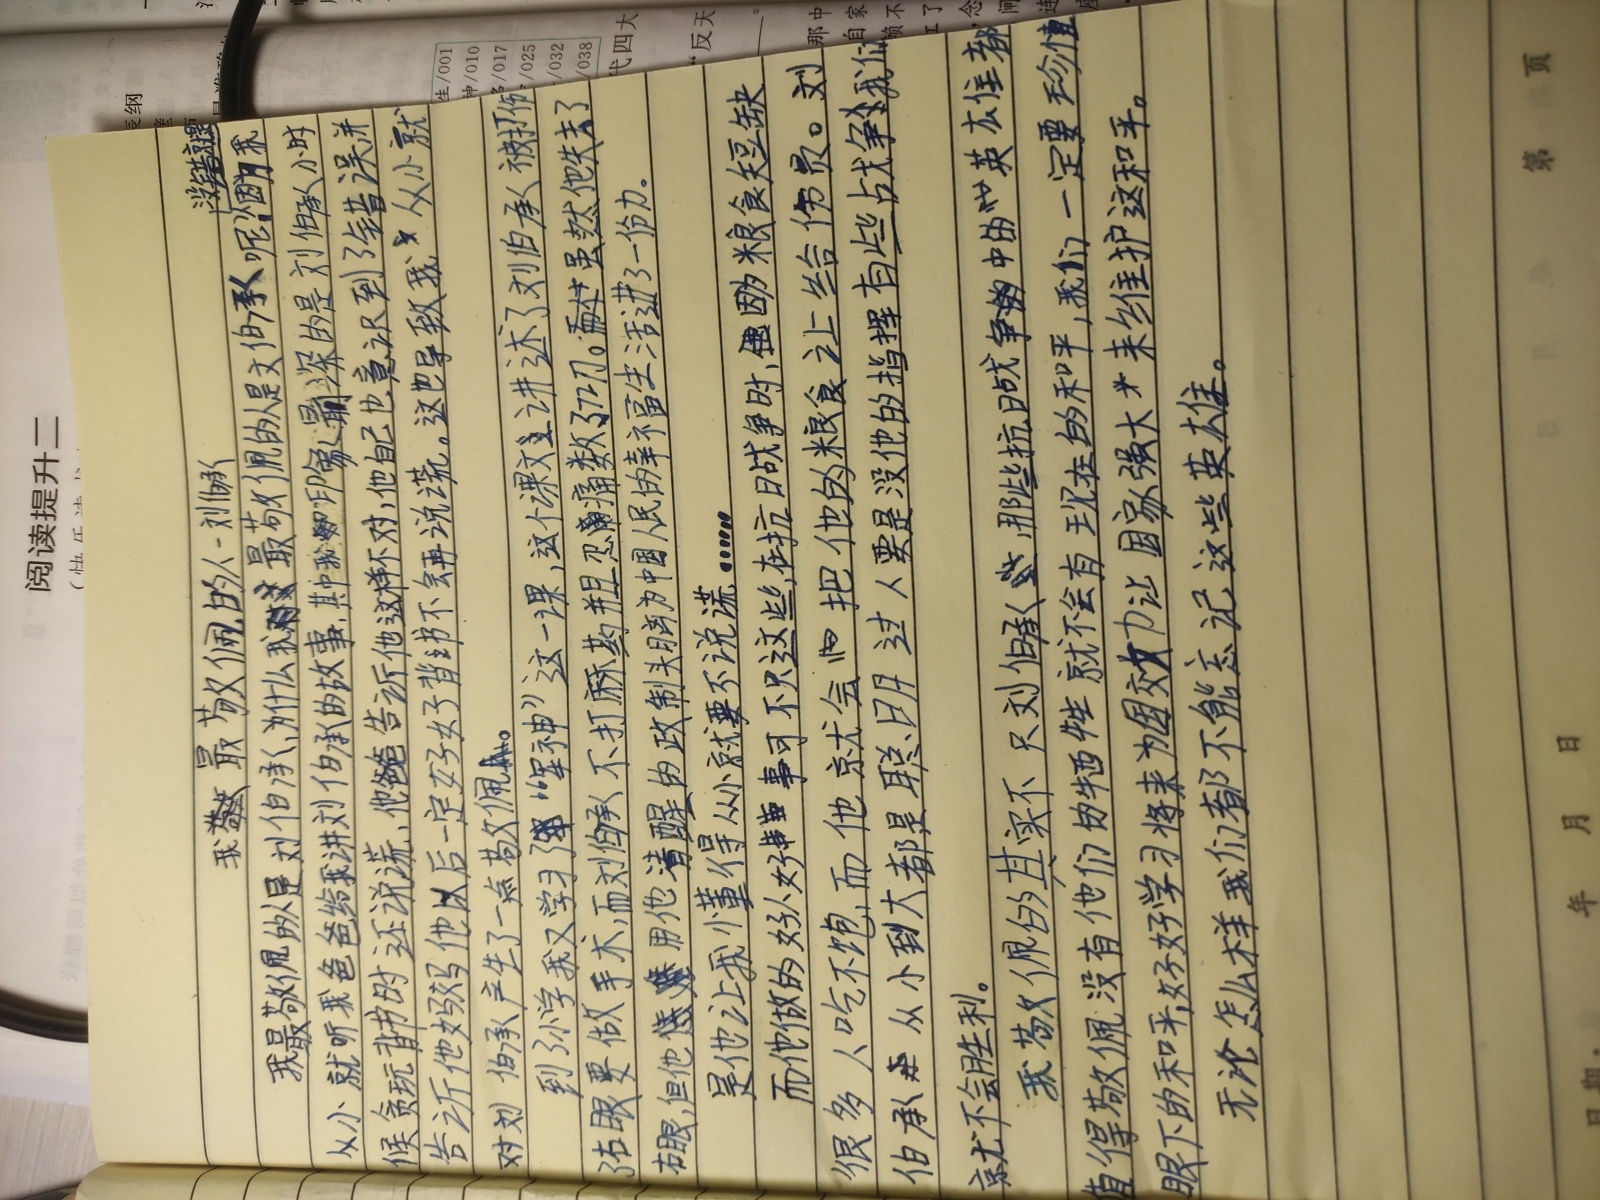 阅读提升二
我最敬佩的人-刘伯承
没错题
我最敬佩的人是刘伯承,为什么我最敬佩的人是文伯承呢?因为我
从小就听我爸爸给我讲刘伯承的故事,其中印象最深的是刘伯承小时
候贪玩背书时还说谎,他爸爸告诉他这样不对,他自己也意识到了错误并
告诉他妈妈他以后一定好好背书不会再说谎。这也导致我从小就
对刘伯承产生了一点敬佩。
到了小学我又学习了“军神”这一课,这个课文讲述了刘伯承被打伤
了右眼要做手术,而刘伯承不打麻药并且忍痛数了72刀。虽然他失去了
右眼,但他用他清醒的政制头脑为中国人民的幸福生活进了一份力。
是他让我懂得从小就要不说谎……
而他做的好人好事可不只这些,在抗日战争时,因为粮食短缺
很多人吃不饱,而他就会把他的粮食让给伤员。刘
伯承从小到大都是聪明过人要是没他的指挥有些战争我们
就不会胜利。
我敬佩的其实不只刘伯承,那些抗日战争中的英雄都
值得敬佩没有他们的牺牲就不会有现在的和平,我们一定要珍惜
眼下的和平,好好学习将来为国效力让国家强大来维护这和平。
无论怎么样我们都不能忘记这些英雄。
年 月 日
第 页
生/001
神/010
/017
/025
/032
/038
代四大
“反天
那中
自家